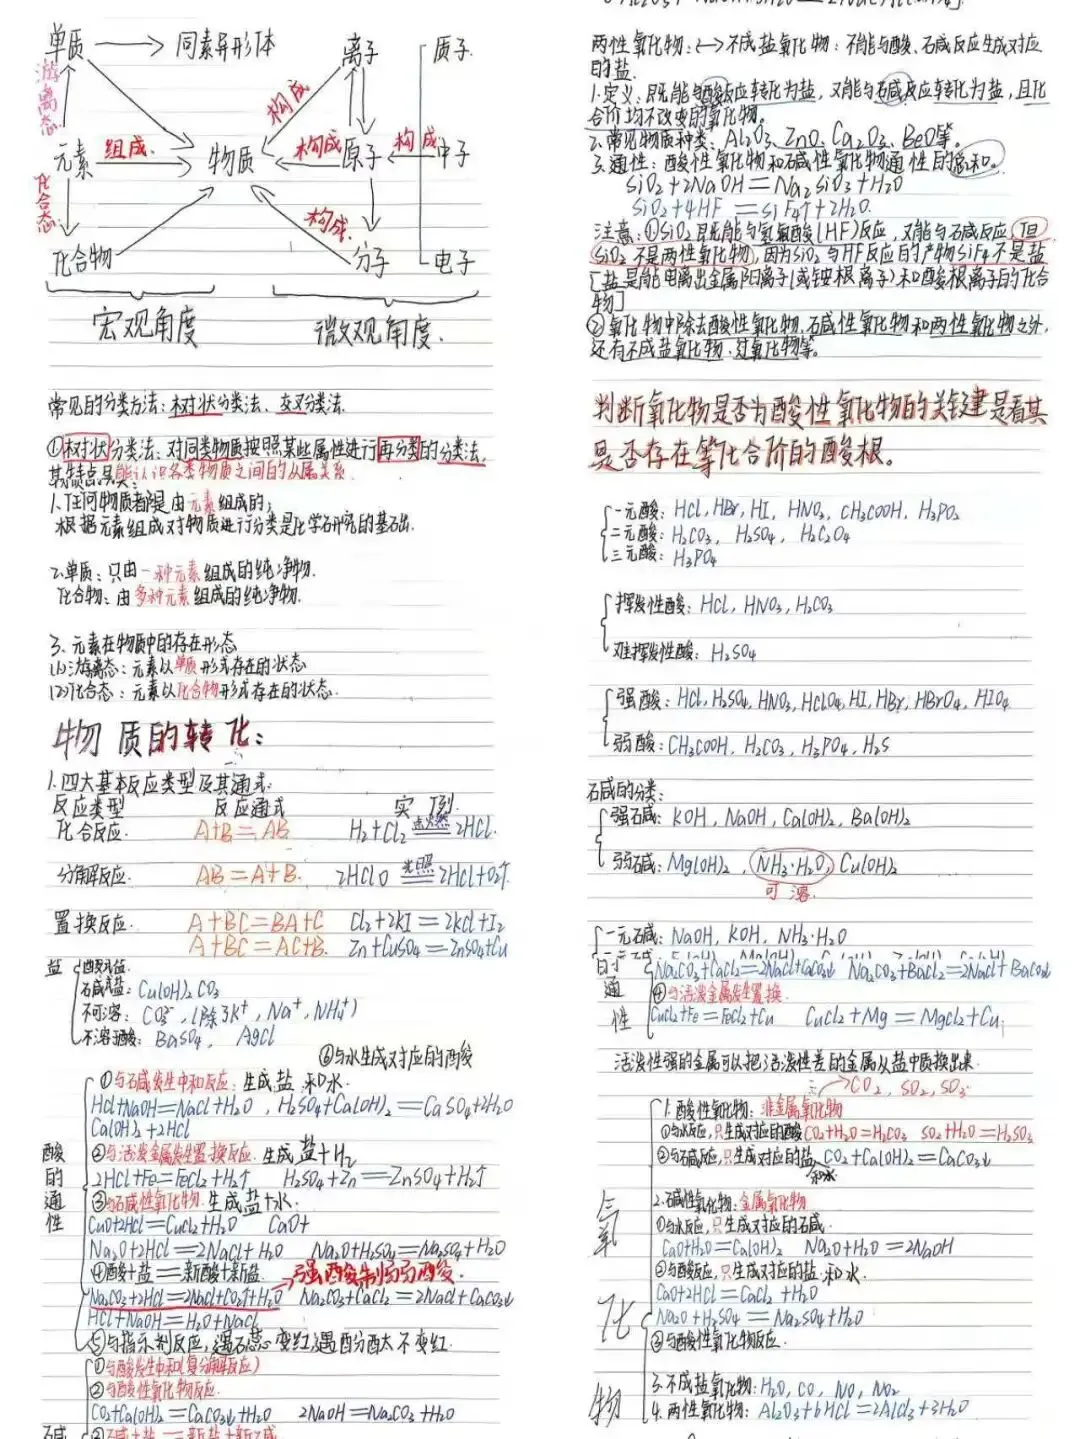 单质 → 同素异形体
离子
质子
游离态
构成
元素 组成 物质 构成 原子 构成 中子
化合态
构成
化合物
分子
电子
宏观角度
微观角度.
常见的分类方法:树状分类法、交叉分类法.
①树状分类法、对同类物质按照某些属性进行再分类的分类法,
其特点是:能认识各类物质之间的从属关系.
1.任何物质都是由元素组成的;
根据元素组成对物质进行分类是化学研究的基础.
2.单质:只由一种元素组成的纯净物.
化合物:由多种元素组成的纯净物.
3.元素在物质中的存在形态
(1)游离态:元素以单质形式存在的状态
(2)化合态:元素以化合物形式存在的状态.
物质的转化:
1.四大基本反应类型及其通式:
反应类型 反应通式 实例.
化合反应. A+B=AB H₂+Cl₂ 点燃 2HCl.
分解反应. AB=A+B. 2HClO 光照 2HCl+O₂↑.
置换反应. A+BC=BA+C Cl₂+2KI=2KCl+I₂
A+BC=AC+B. Zn+CuSO₄=ZnSO₄+Cu
盐
酸式盐.
碱式盐:Cu₂(OH)₂CO₃
不可溶: CO₃²⁻,(除了K⁺,Na⁺,NH₄⁺)
不溶于酸: BaSO₄, AgCl
⑥与水生成对应的酸
酸的通性
①与碱发生中和反应:生成盐和水.
HCl+NaOH=NaCl+H₂O, H₂SO₄+Ca(OH)₂=CaSO₄+2H₂O
Ca(OH)₂+2HCl
②与活泼金属发生置换反应.生成盐+H₂
2HCl+Fe=FeCl₂+H₂↑ H₂SO₄+Zn=ZnSO₄+H₂↑
③与碱性氧化物.生成盐+水.
CuO+2HCl=CuCl₂+H₂O CaO+
Na₂O+2HCl=2NaCl+H₂O Na₂O+H₂SO₄=Na₂SO₄+H₂O
④酸+盐=新酸+新盐. →强酸制弱酸.
Na₂CO₃+2HCl=2NaCl+CO₂↑+H₂O Na₂CO₃+CaCl₂=2NaCl+CaCO₃↓
HCl+NaOH=H₂O+NaCl
⑤与指示剂反应,遇石蕊变红,遇酚酞不变红.
①与酸发生中和(复分解反应)
②与酸性氧化物反应.
CO₂+Ca(OH)₂=CaCO₃↓+H₂O 2NaOH=Na₂CO₃+H₂O
碱
③碱+盐=新盐+新碱
两性氧化物:↔不成盐氧化物:不能与酸、碱反应生成对应
的盐.
1.定义:既能与酸反应转化为盐,又能与碱反应转化为盐,且化
合价均不改变的氧化物。
2.常见物质种类:Al₂O₃、ZnO、Ca₂O₃、BeO等。
3.通性:酸性氧化物和碱性氧化物通性的总和。
SiO₂+2NaOH=Na₂SiO₃+H₂O
SiO₂+4HF=SiF₄↑+2H₂O.
注意:①SiO₂既能与氢氟酸(HF)反应,又能与碱反应,但
SiO₂不是两性氧化物,因为SiO₂与HF反应的产物SiF₄不是盐
[盐是能电离出金属阳离子(或铵根离子)和酸根离子的化合
物]
②氧化物中除去酸性氧化物、碱性氧化物和两性氧化物之外,
还有不成盐氧化物、过氧化物等。
判断氧化物是否为酸性氧化物的关键是看其
是否存在等化合价的酸根。
一元酸:HCl, HBr, HI, HNO₃, CH₃COOH, H₃PO₂
二元酸:H₂CO₃, H₂SO₄, H₂C₂O₄
三元酸:H₃PO₄
挥发性酸:HCl, HNO₃, H₂CO₃
难挥发性酸:H₂SO₄
强酸:HCl, H₂SO₄, HNO₃, HClO₄, HI, HBr, HBrO₄, HIO₄
弱酸:CH₃COOH, H₂CO₃, H₃PO₄, H₂S
碱的分类:
强碱:KOH, NaOH, Ca(OH)₂, Ba(OH)₂
弱碱:Mg(OH)₂, NH₃·H₂O, Cu(OH)₂
可溶.
一元碱:NaOH, KOH, NH₃·H₂O
的通性
Na₂CO₃+CaCl₂=2NaCl+CaCO₃↓ Na₂CO₃+BaCl₂=2NaCl+BaCO₃↓
④与活泼金属发生置换.
CuCl₂+Fe=FeCl₂+Cu CuCl₂+Mg=MgCl₂+Cu;
活泼性强的金属可以把活泼性差的金属从盐中质换出来.
→CO₂, SO₂, SO₃.
氧化物
1.酸性氧化物:非金属氧化物
①与水反应,只生成对应的酸 CO₂+H₂O=H₂CO₃ SO₂+H₂O=H₂SO₃
②与碱反应,只生成对应的盐 和水 CO₂+Ca(OH)₂=CaCO₃↓
2.碱性氧化物:金属氧化物
①与水反应,只生成对应的碱.
CaO+H₂O=Ca(OH)₂ Na₂O+H₂O=2NaOH
②与酸反应,只生成对应的盐.和水.
CaO+2HCl=CaCl₂+H₂O
Na₂O+H₂SO₄=Na₂SO₄+H₂O
③与酸性氧化物反应.
3.不成盐氧化物:H₂O, CO, NO, NO₂
4.两性氧化物:Al₂O₃+6HCl=2AlCl₃+3H₂O